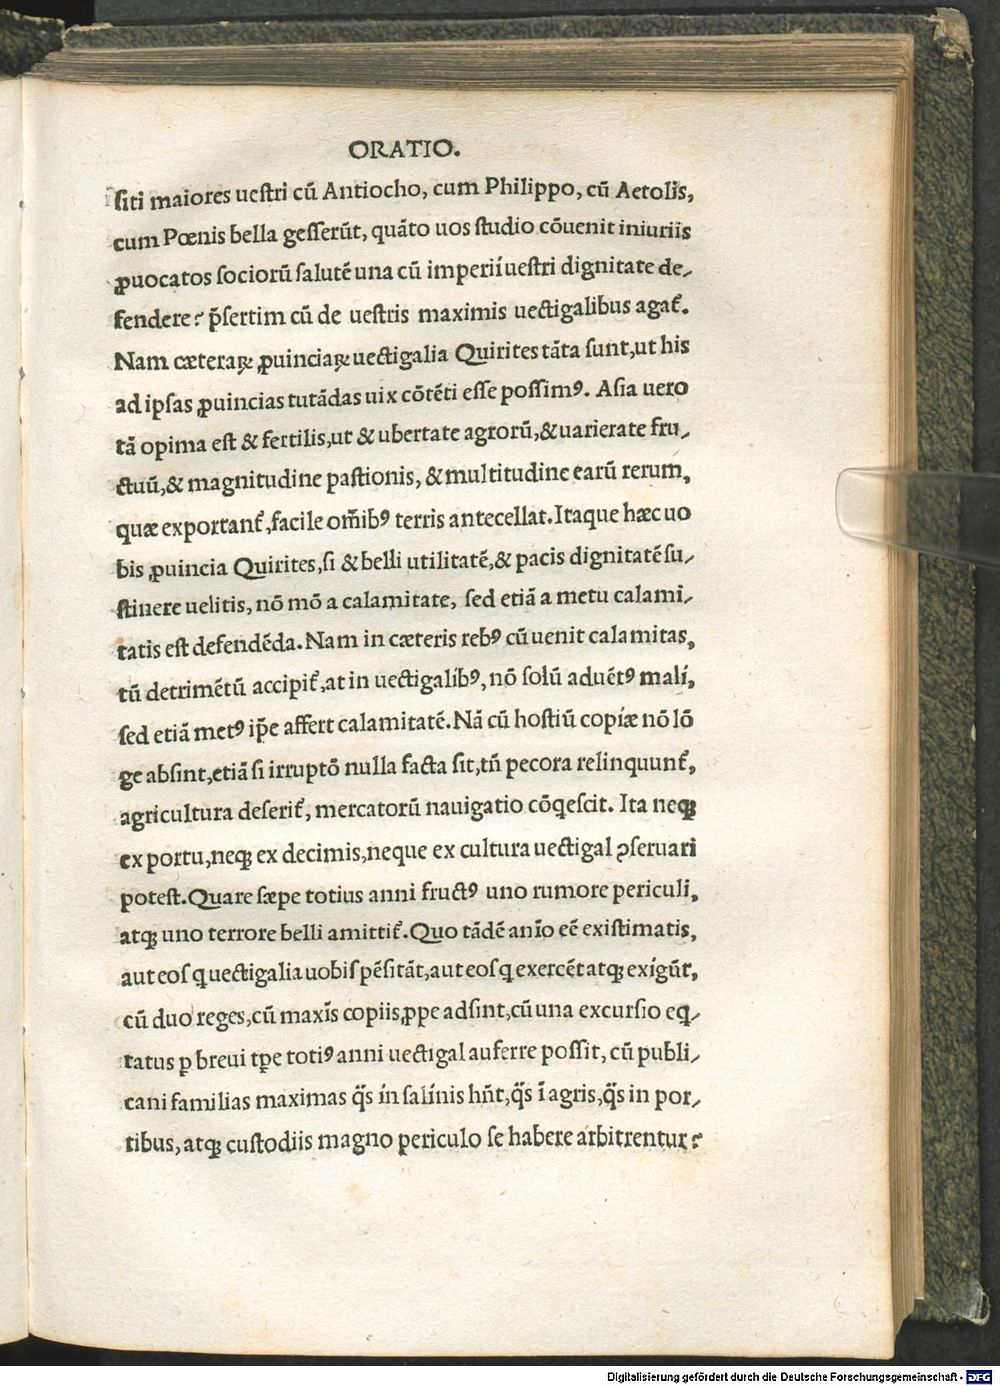 ORATIO.
ſiti maiores ueſtri cū Antiocho, cum Philippo, cū Aetolis,
cum Pœnis bella geſſerūt, quāto uos ſtudio cōuenit iniuriis
ꝓuocatos ſociorū ſalutē una cū imperii ueſtri dignitate de⸗
fendere? p̄ſertim cū de ueſtris maximis uectigalibus agat᷑.
Nam cæteraꝝ ꝓuinciaꝝ uectigalia Quirites tāta ſunt, ut his
ad ipſas ꝓuincias tutādas uix cōtēti eſſe poſſimꝰ. Aſia uero
tā opima eſt & fertilis, ut & ubertate agrorū, & uarierate fru⸗
ctuū, & magnitudine paſtionis, & multitudine earū rerum,
quæ exportant᷑, facile om̄ibꝰ terris antecellat. Itaque hæc uo
bis ꝓuincia Quirites, ſi & belli utilitatē, & pacis dignitatē ſu⸗
ſtinere uelitis, nō mō a calamitate, ſed etiā a metu calami⸗
tatis eſt defendēda. Nam in cæteris rebꝰ cū uenit calamitas,
tū detrimētū accipit᷑, at in uectigalibꝰ, nō ſolū aduētꝰ mali,
ſed etiā metꝰ ip̄e affert calamitatē. Nā cū hoſtiū copiæ nō lō
ge abſint, etiā ſi irruptō nulla facta ſit, tn̄ pecora relinquunt᷑,
agricultura deſerit᷑, mercatorū nauigatio cōq̄eſcit. Ita neqꝫ
ex portu, neqꝫ ex decimis, neque ex cultura uectigal ꝯſeruari
poteſt. Quare ſæpe totius anni fructꝰ uno rumore periculi,
atqꝫ uno terrore belli amittit᷑. Quo tādē anīo eē exiſtimatis,
aut eos q uectigalia uobiſ pēſitāt, aut eoſ q exercēt atqꝫ exigūt,
cū duo reges, cū maxīs copiis, ꝓpe adſint, cū una excurſio eq⸗
tatus ꝑ breui tp̄e totiꝰ anni uectigal auferre poſſit, cū publi⸗
cani familias maximas q̄s in ſalinis hn̄t, q̄s ī agris, q̄s in por⸗
tibus, atqꝫ cuſtodiis magno periculo ſe habere arbitrentur?
Digitalisierung gefördert durch die Deutsche Forschungsgemeinschaft - DFG